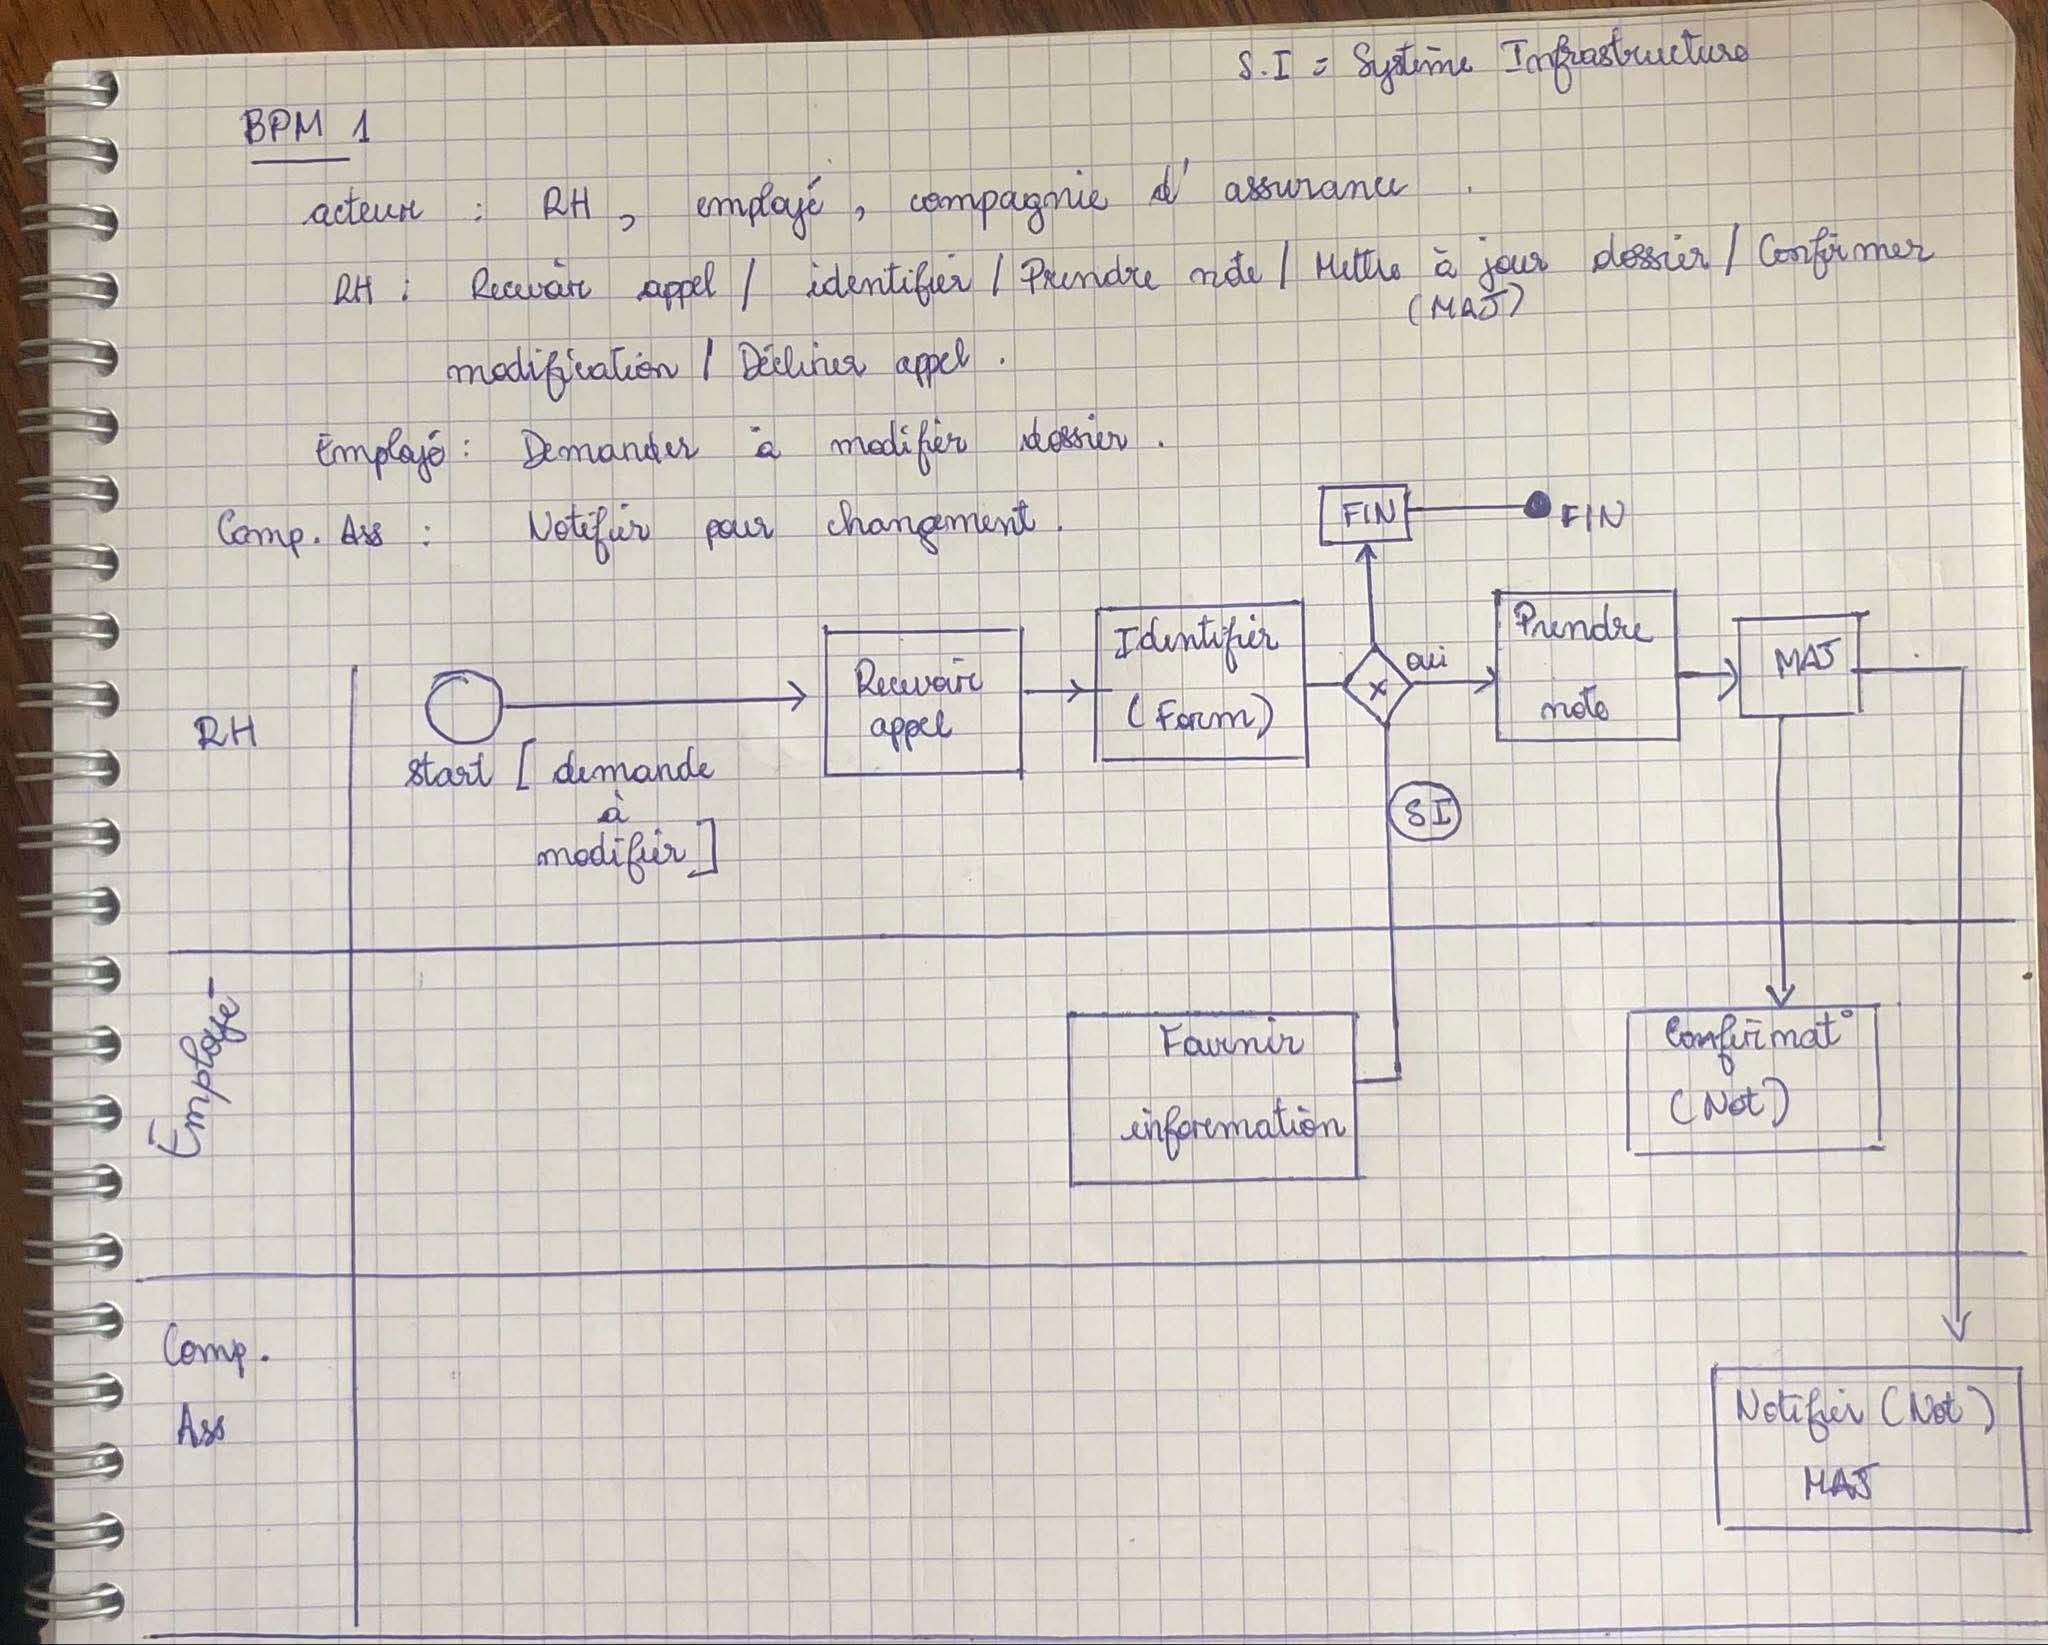 S.I = Système Infrastructure
BPM 1
acteur : RH, employé, compagnie d'assurance.
RH : Recevoir appel / identifier / Prendre note / Mettre à jour dossier / Confirmer
(MAJ)
modification / Décliner appel.
Employé : Demander à modifier dossier.
Comp. Ass : Notifier pour changement.
FIN
FIN
RH
start [demande
à
modifier]
Recevoir
appel
Identifier
(Form)
X
oui
Prendre
note
MAJ
SI
Employé
Fournir
information
Confirmat°
(Not)
Comp.
Ass
Notifier (Not)
MAJ